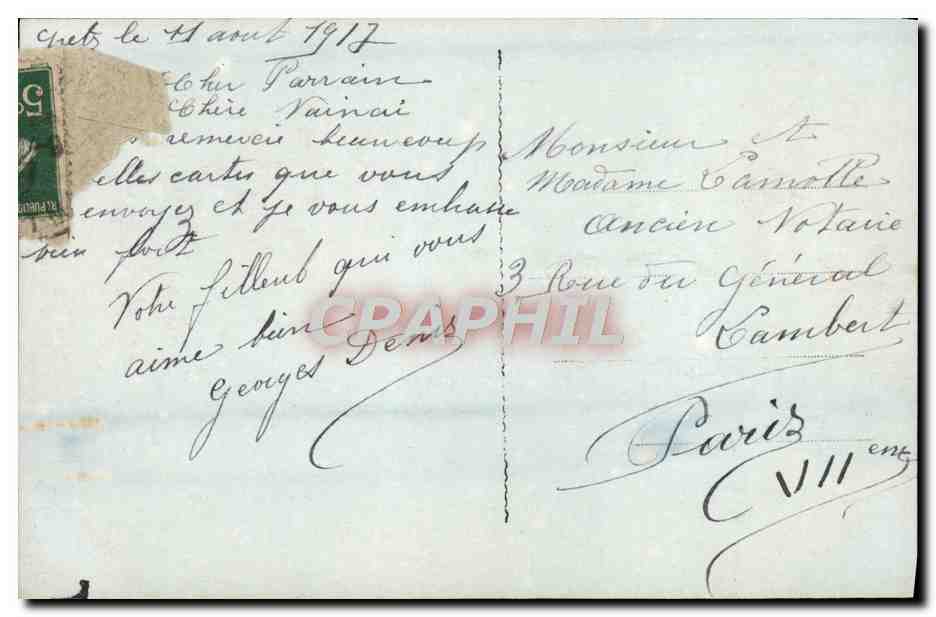 Gretz le 11 aout 1917
Cher Parrain
Chère Nainai
remercie beaucoup
elles cartes que vous
envoyez et je vous embrasse
bien fort
Votre filleul qui vous
aime bien
Georges Denis
Monsieur et
Madame Lamotte
Ancien Notaire
3 Rue du Général
Lambert
Paris
VII eme
5c
CPAPHIL